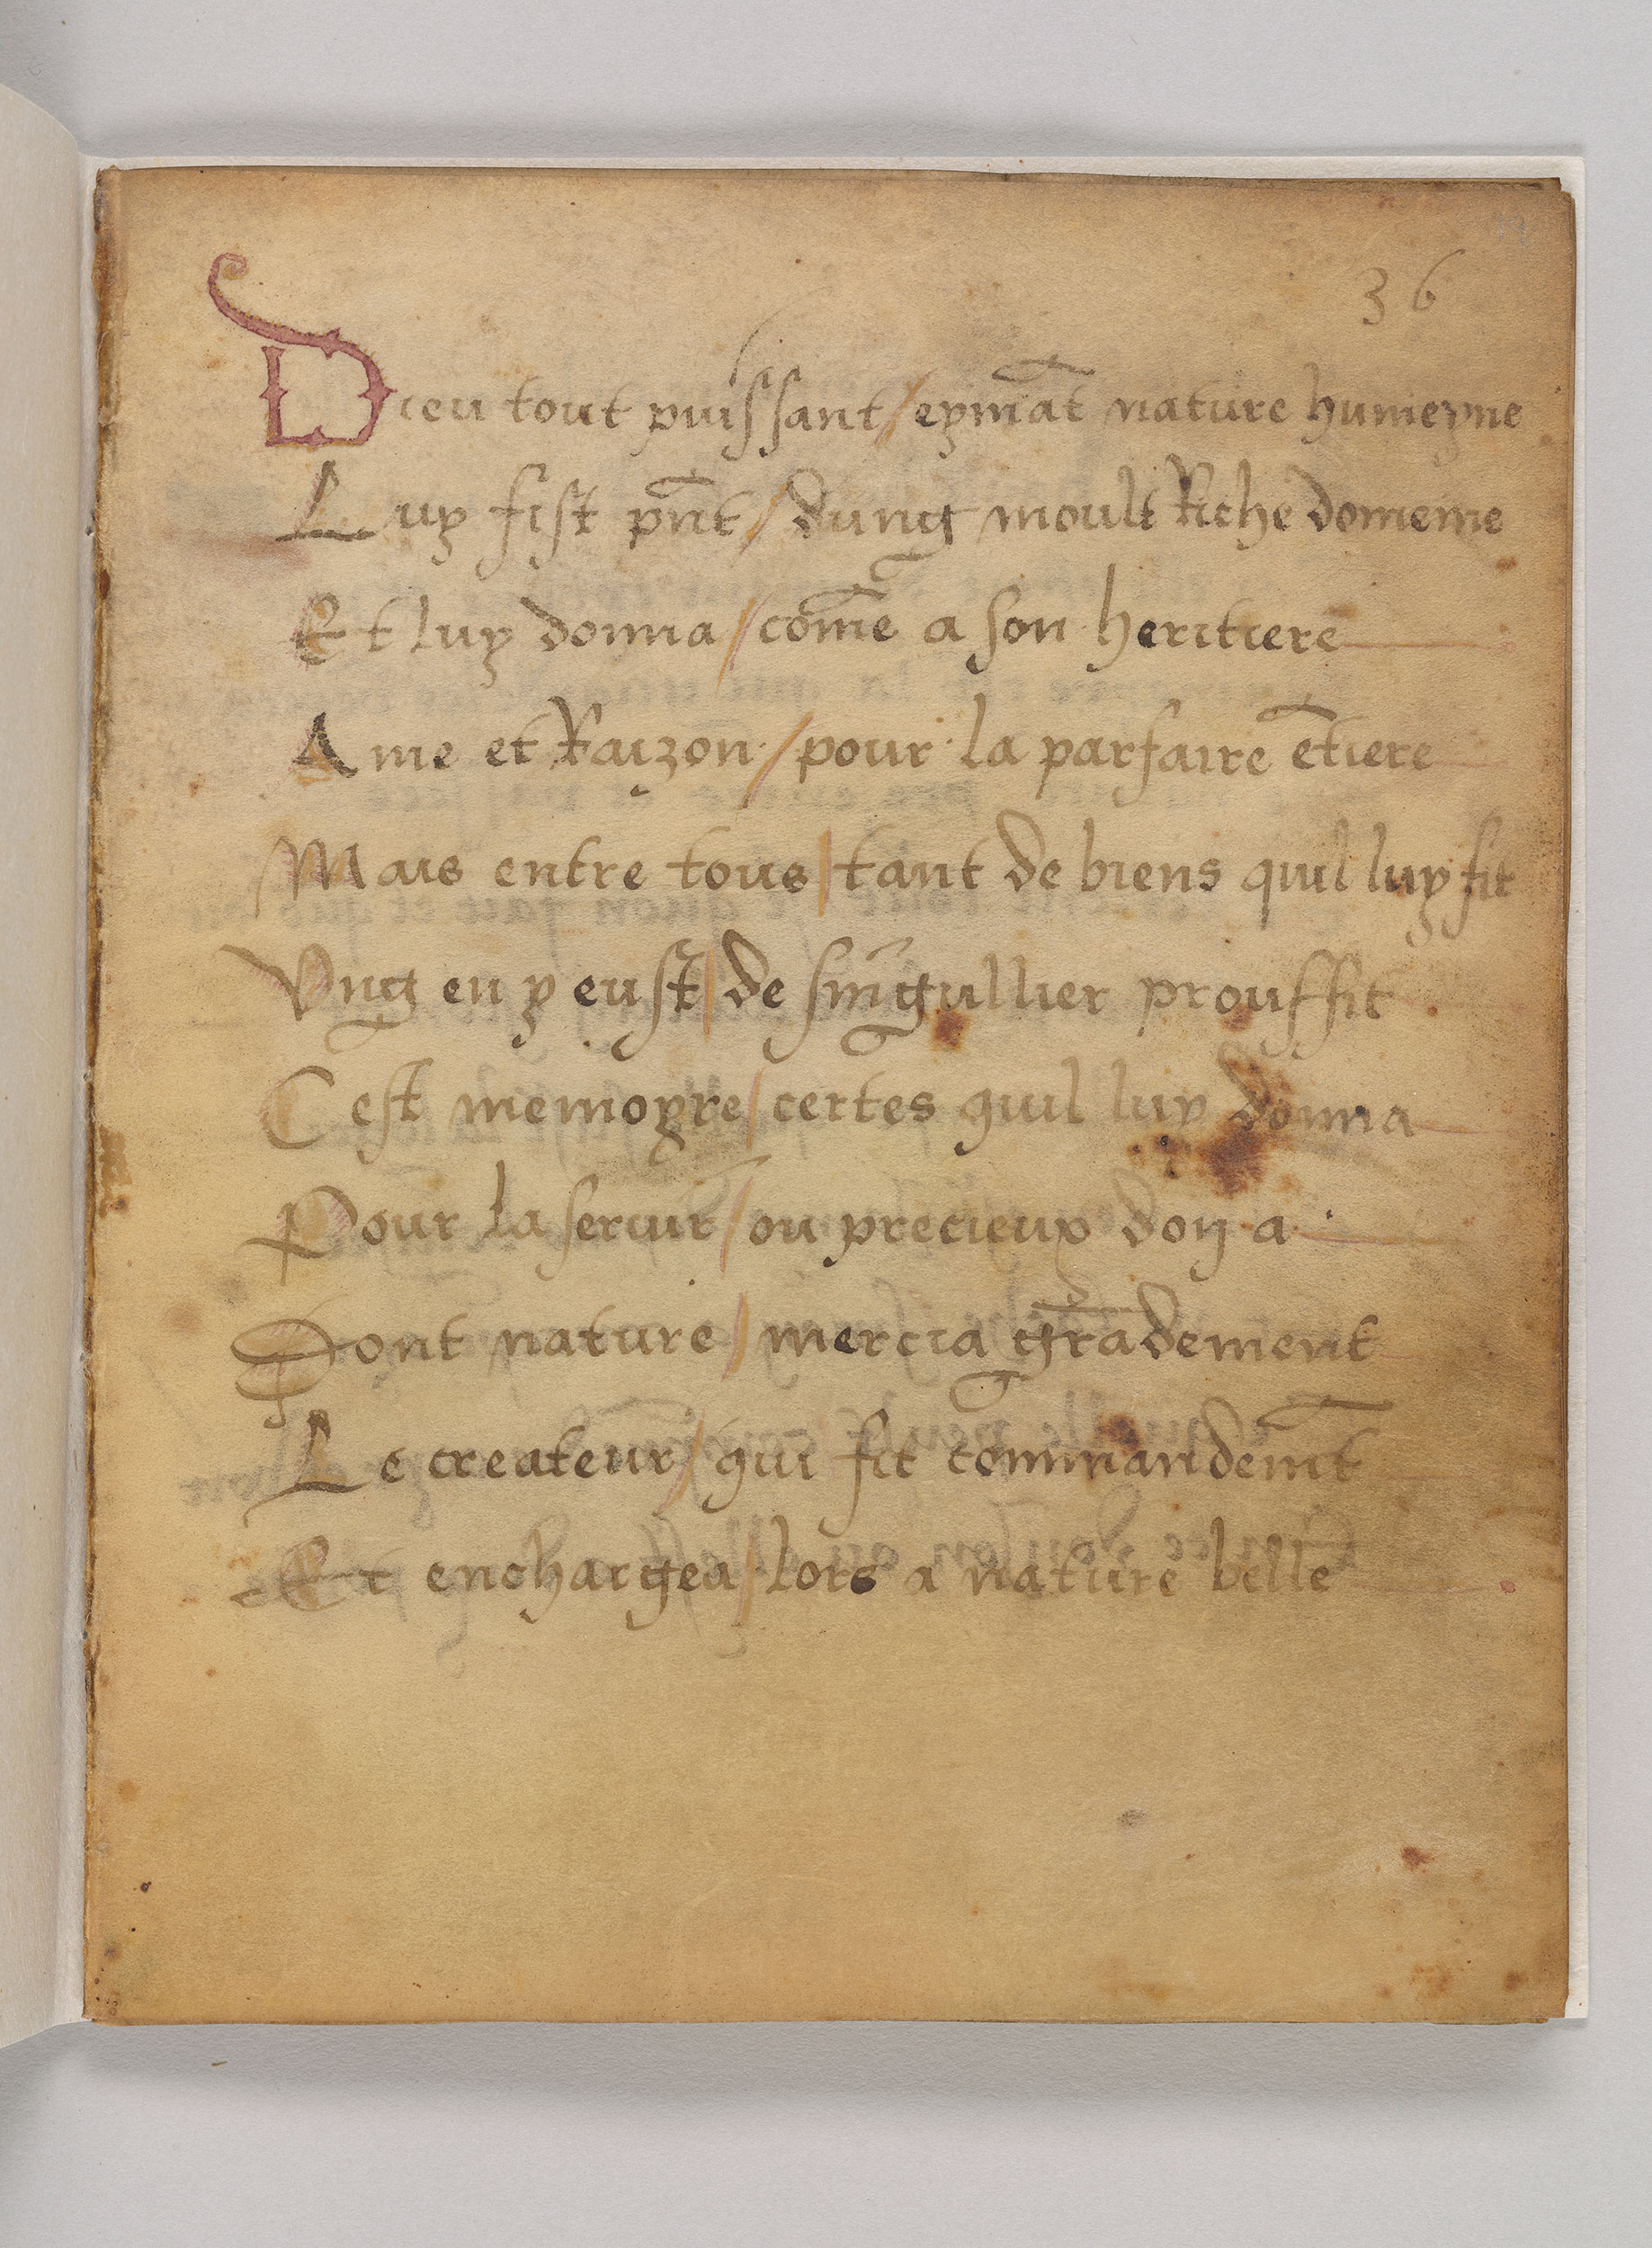 36
Dieu tout puissant / eymāt nature humeyne
Luy fist pñt / dung moult Riche domeme
Et luy donna / com̄e a son heritiere
Ame et Raizon / pour la parfaire ētiere
Mais entre tous / tant de biens quil luy fit
Ung en y eust / de singullier prouffit
Cest memoyre / certes quil luy donna
Pour la seruir / ou precieux don a
Dont nature / mercia grādement
Le createur / qui fit commandemt̄
Et enchargea / lors a nature belle